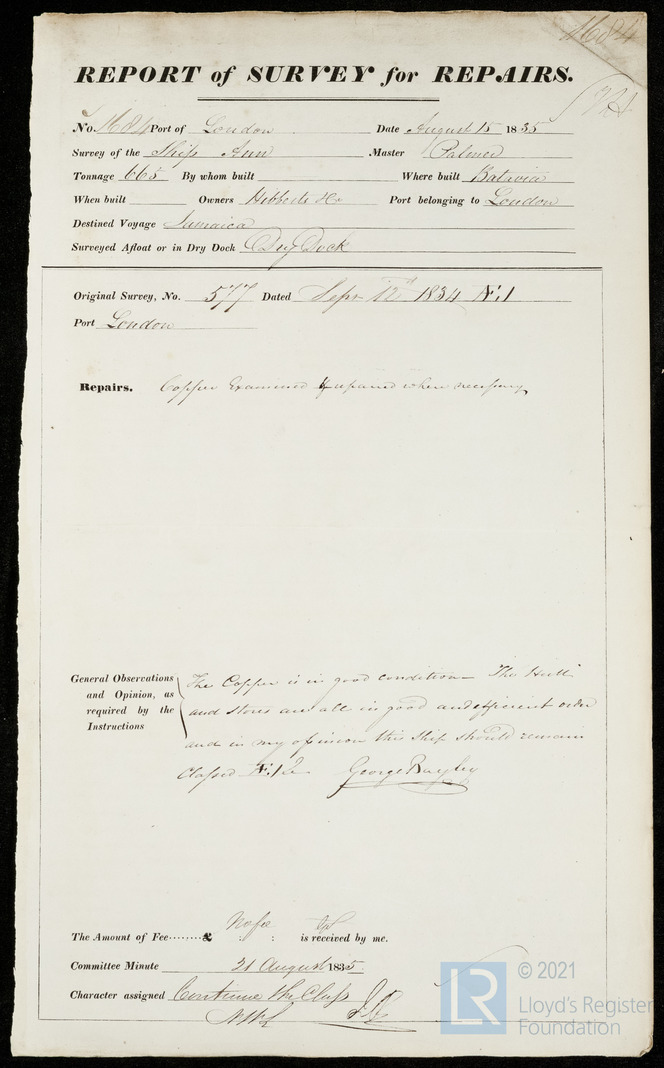 11684
REPORT of SURVEY for REPAIRS.
No. 11684 Port of London Date August 15 1835
Survey of the Ship Ann Master Palmer
Tonnage 665 By whom built Where built Batavia
When built Owners Hibberts & Co Port belonging to London
Destined Voyage Jamaica
Surveyed Afloat or in Dry Dock Dry Dock
Original Survey, No. 577 Dated Sept 12th 1834 Æ.1
Port London
Repairs. Copper Examined & repaired where necessary
General Observations and Opinion, as required by the Instructions
The Copper is in good condition The Hull
and stores are all in good and efficient order
and in my opinion this Ship should remain
Classed Æ.1 George Bayley
The Amount of Fee········£ No fee : is received by me.
Committee Minute 21 August 1835.
Character assigned Continue the Class
© 2021
LR
Lloyd's Register
Foundation